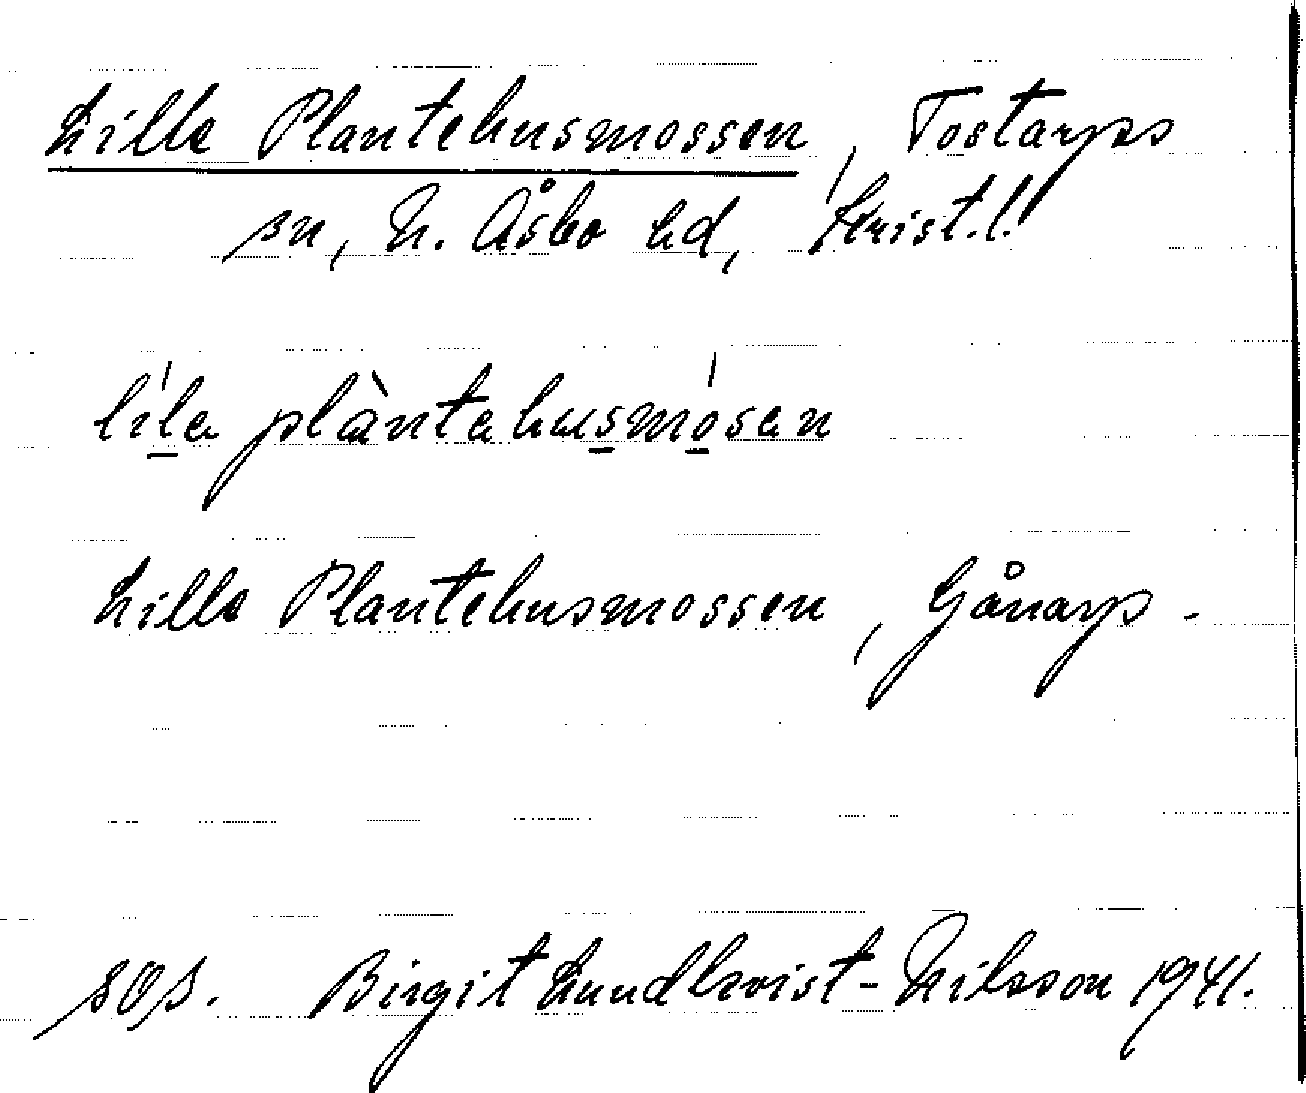 Lille Plantehusmossen, Tostarps
sn, N. Åsbo hd, Krist. l.
líla plàntahusmósan
Lille Plantehusmossen, Gånarp.
SOS. Birgit Lundkvist-Nilsson 1941.